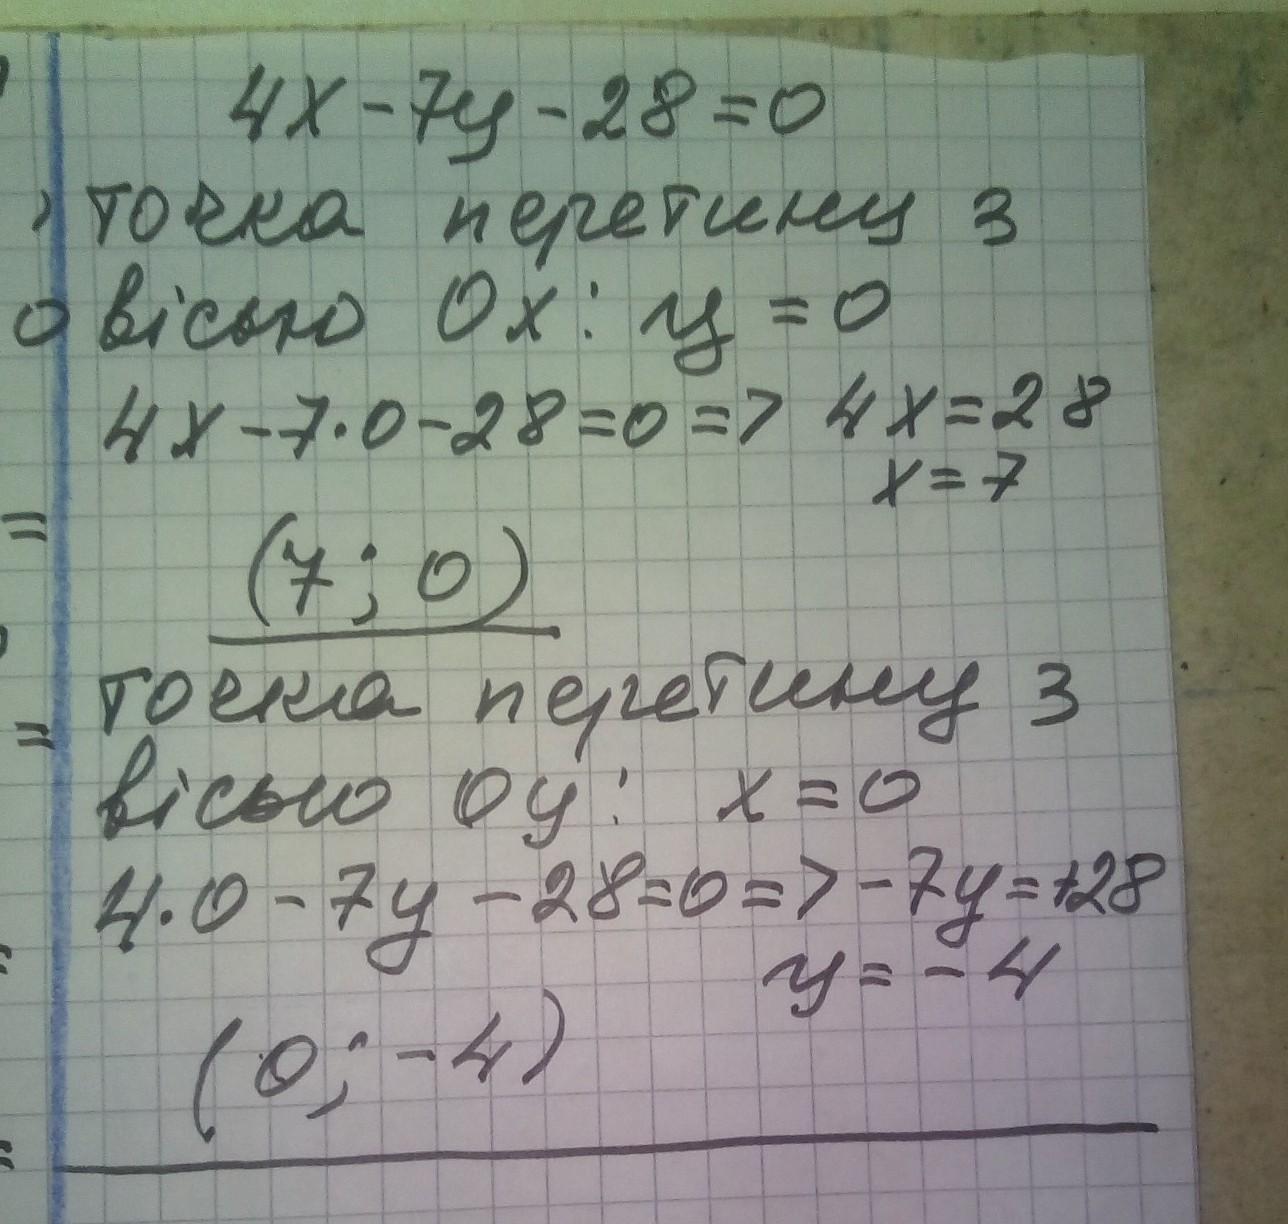 4x - 7y - 28 = 0
точка перетину з
вісью Ox: y = 0
4x - 7·0 - 28 = 0 => 4x = 28
x = 7
(7; 0)
точка перетину з
вісью Oy: x = 0
4·0 - 7y - 28 = 0 => -7y = +28
y = -4
(0; -4)